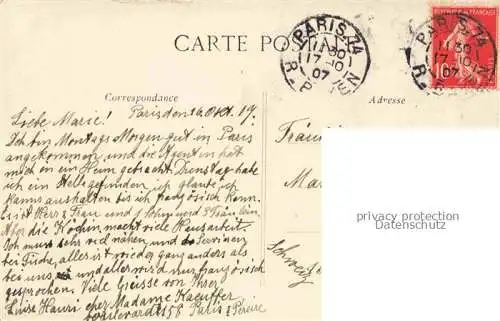 CARTE POSTALE
PARIS 74
11 30
17-10
07
R. P
PARIS 74
11 30
17-10
07
R.
10
Correspondance
Adresse
Liebe Marie! Paris den 16 Okt. 17.
Ich bin Montags Morgen gut in Paris
angekommen und die Agentin hat
mich in ein Heim gebracht Dienstag habe
ich ein gefunden, ich glaube ich
kanns aushalten bis ich französisch kann.
es ist Herr u Frau und 1 Sohn und 3
Aber die Köchin macht viel Hausarbeit.
Ich muss sehr viel nähen und Servieren
bei Tische, alles ist wieder ganz anders als
bei uns, und aller wird nur französisch
gesprochen. Viele Grüsse von Ihrer
Luise Hauri chez Madame Kaeuffer
boulevard 158 Paris Pereire
Fräu
Ma
Schweiz
privacy protection
Datenschutz